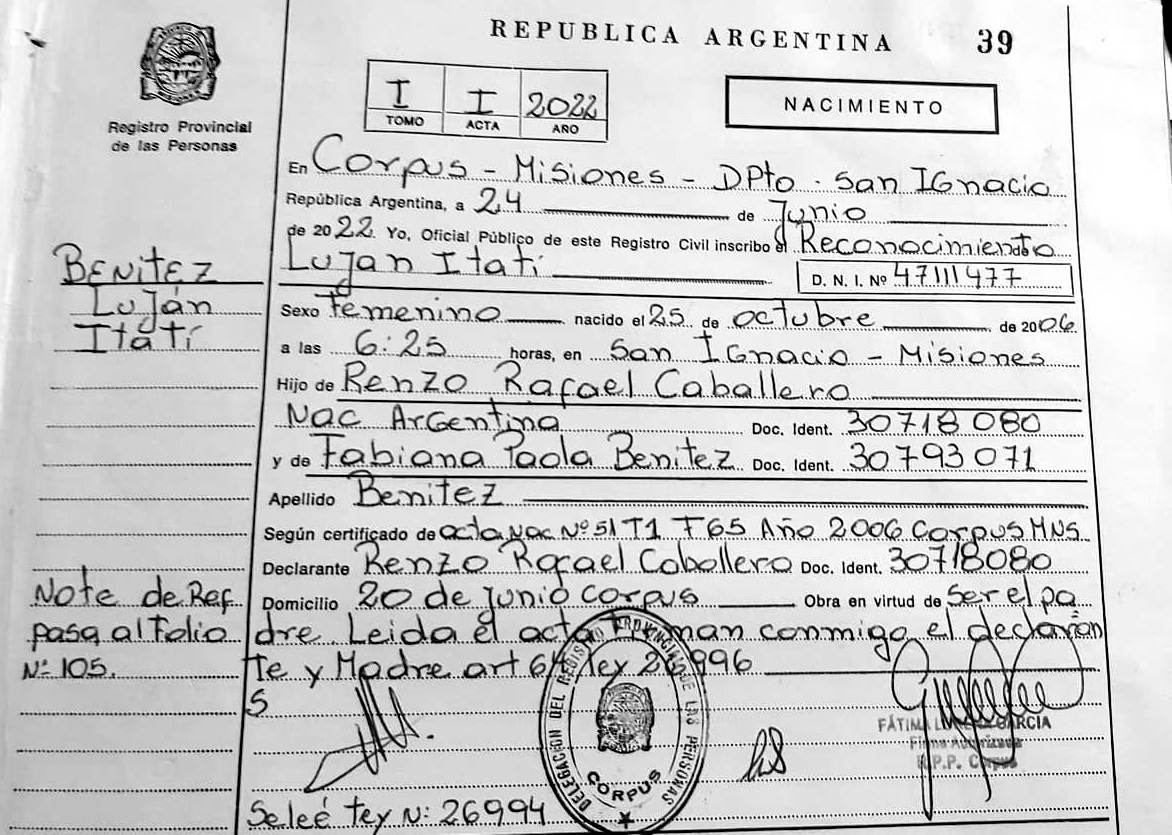 REPUBLICA ARGENTINA 39
Registro Provincial
de las Personas
I I 2022
TOMO ACTA AÑO
NACIMIENTO
En Corpus - Misiones - DPto. San IGnacio
República Argentina, a 24 de Junio
de 2022. Yo, Oficial Público de este Registro Civil inscribo el Reconocimiento
BENITEZ
Luján
Itatí
Lujan Itatí D. N. I. Nº 47111477
Sexo Femenino nacido el 25 de octubre de 2006
a las 6:25 horas, en San IGnacio - Misiones
Hijo de Renzo Rafael Caballero
Nac ArGentina Doc. Ident. 30718080
y de Fabiana Paola Benitez Doc. Ident. 30793071
Apellido Benitez
Según certificado de acta Nac Nº 51 T1 F65 Año 2006 Corpus MNS.
Declarante Renzo Rafael Caballero Doc. Ident. 30718080
Domicilio 20 de Junio Corpus Obra en virtud de Ser el pa
dre Leida el acta Firman conmigo el declaran
te y Madre art 64 ley 26996
S
Note de Ref
pasa al Folio
Nº 105.
DELEGACION DEL REGISTRO PROVINCIAL DE LAS PERSONAS
CORPUS
FÁTIMA GARCIA
Firma Autorizada
R.P.P. Corpus
Seleé ley N: 26994